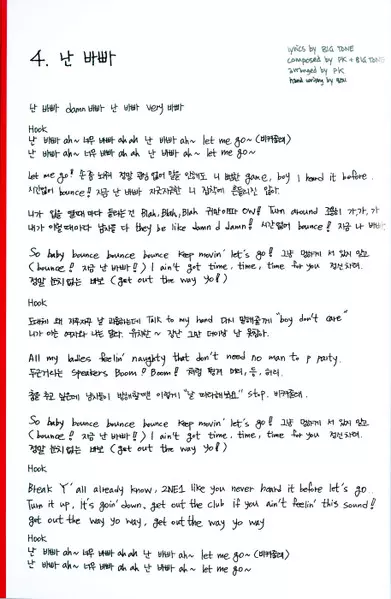 4. 난 바빠
lyrics by BIG TONE
composed by PK + BIG TONE
arranged by PK
hand writing by
난 바빠 damn 바빠 난 바빠 very 바빠
Hook
난 바빠 ah~ 너무 바빠 ah ah 난 바빠 ah~ let me go~ (비켜줄래)
난 바빠 ah~ 너무 바빠 ah ah 난 바빠 ah~ let me go~
Let me go! 손 좀 놔줘 정말 관심 없어 말을 안해도 니 뻔한 game, boy I heard it before.
시간없어 bounce! 지금 난 바빠 지긋지긋한 니 집착에 흔들리진 않아.
니가 입을 열 때마다 들리는 건 Blah, Blah, Blah 귀만 아파 OW! Turn around 그만 가, 가, 가
내가 이럴 때마다 남자들 다 they be like damn d damn! 시간없어 bounce! 지금 나 바빠
So baby bounce bounce bounce keep movin' let's go! 그냥 멍하게 서 있지 말고
(bounce! 지금 난 바빠!) I ain't got time, time, time for you 정신차려.
정말 눈치없는 바보 (get out the way yo!)
Hook
도대체 왜 자꾸자꾸 날 괴롭히는데 Talk to my hand 다시 말해줄게 "boy don't care"
니가 아는 여자와 나는 달라. 유치한 장난 그만 더이상 날 못잡아.
All my ladies feelin' naughty that don't need no man to p party.
두근거리는 speakers Boom! Boom! 처럼 튕겨 머리, 등, 허리.
춤을 추고 싶은데 남자들이 방해할때면 이렇게 "날 따라해보요" stop. 비켜줄래.
So baby bounce bounce bounce keep movin' let's go! 그냥 멍하게 서 있지 말고
(bounce! 지금 난 바빠!) I ain't got time, time, time for you 정신차려.
정말 눈치없는 바보 (get out the way yo!)
Hook
Break Y'all already know, 2NE1 like you never heard it before let's go
Turn it up, It's goin' down, get out the club if you ain't feelin' this sound!
get out the way yo way, get out the way yo way
Hook
난 바빠 ah~ 너무 바빠 ah ah 난 바빠 ah~ let me go~ (비켜줄래)
난 바빠 ah~ 너무 바빠 ah ah 난 바빠 ah~ let me go~